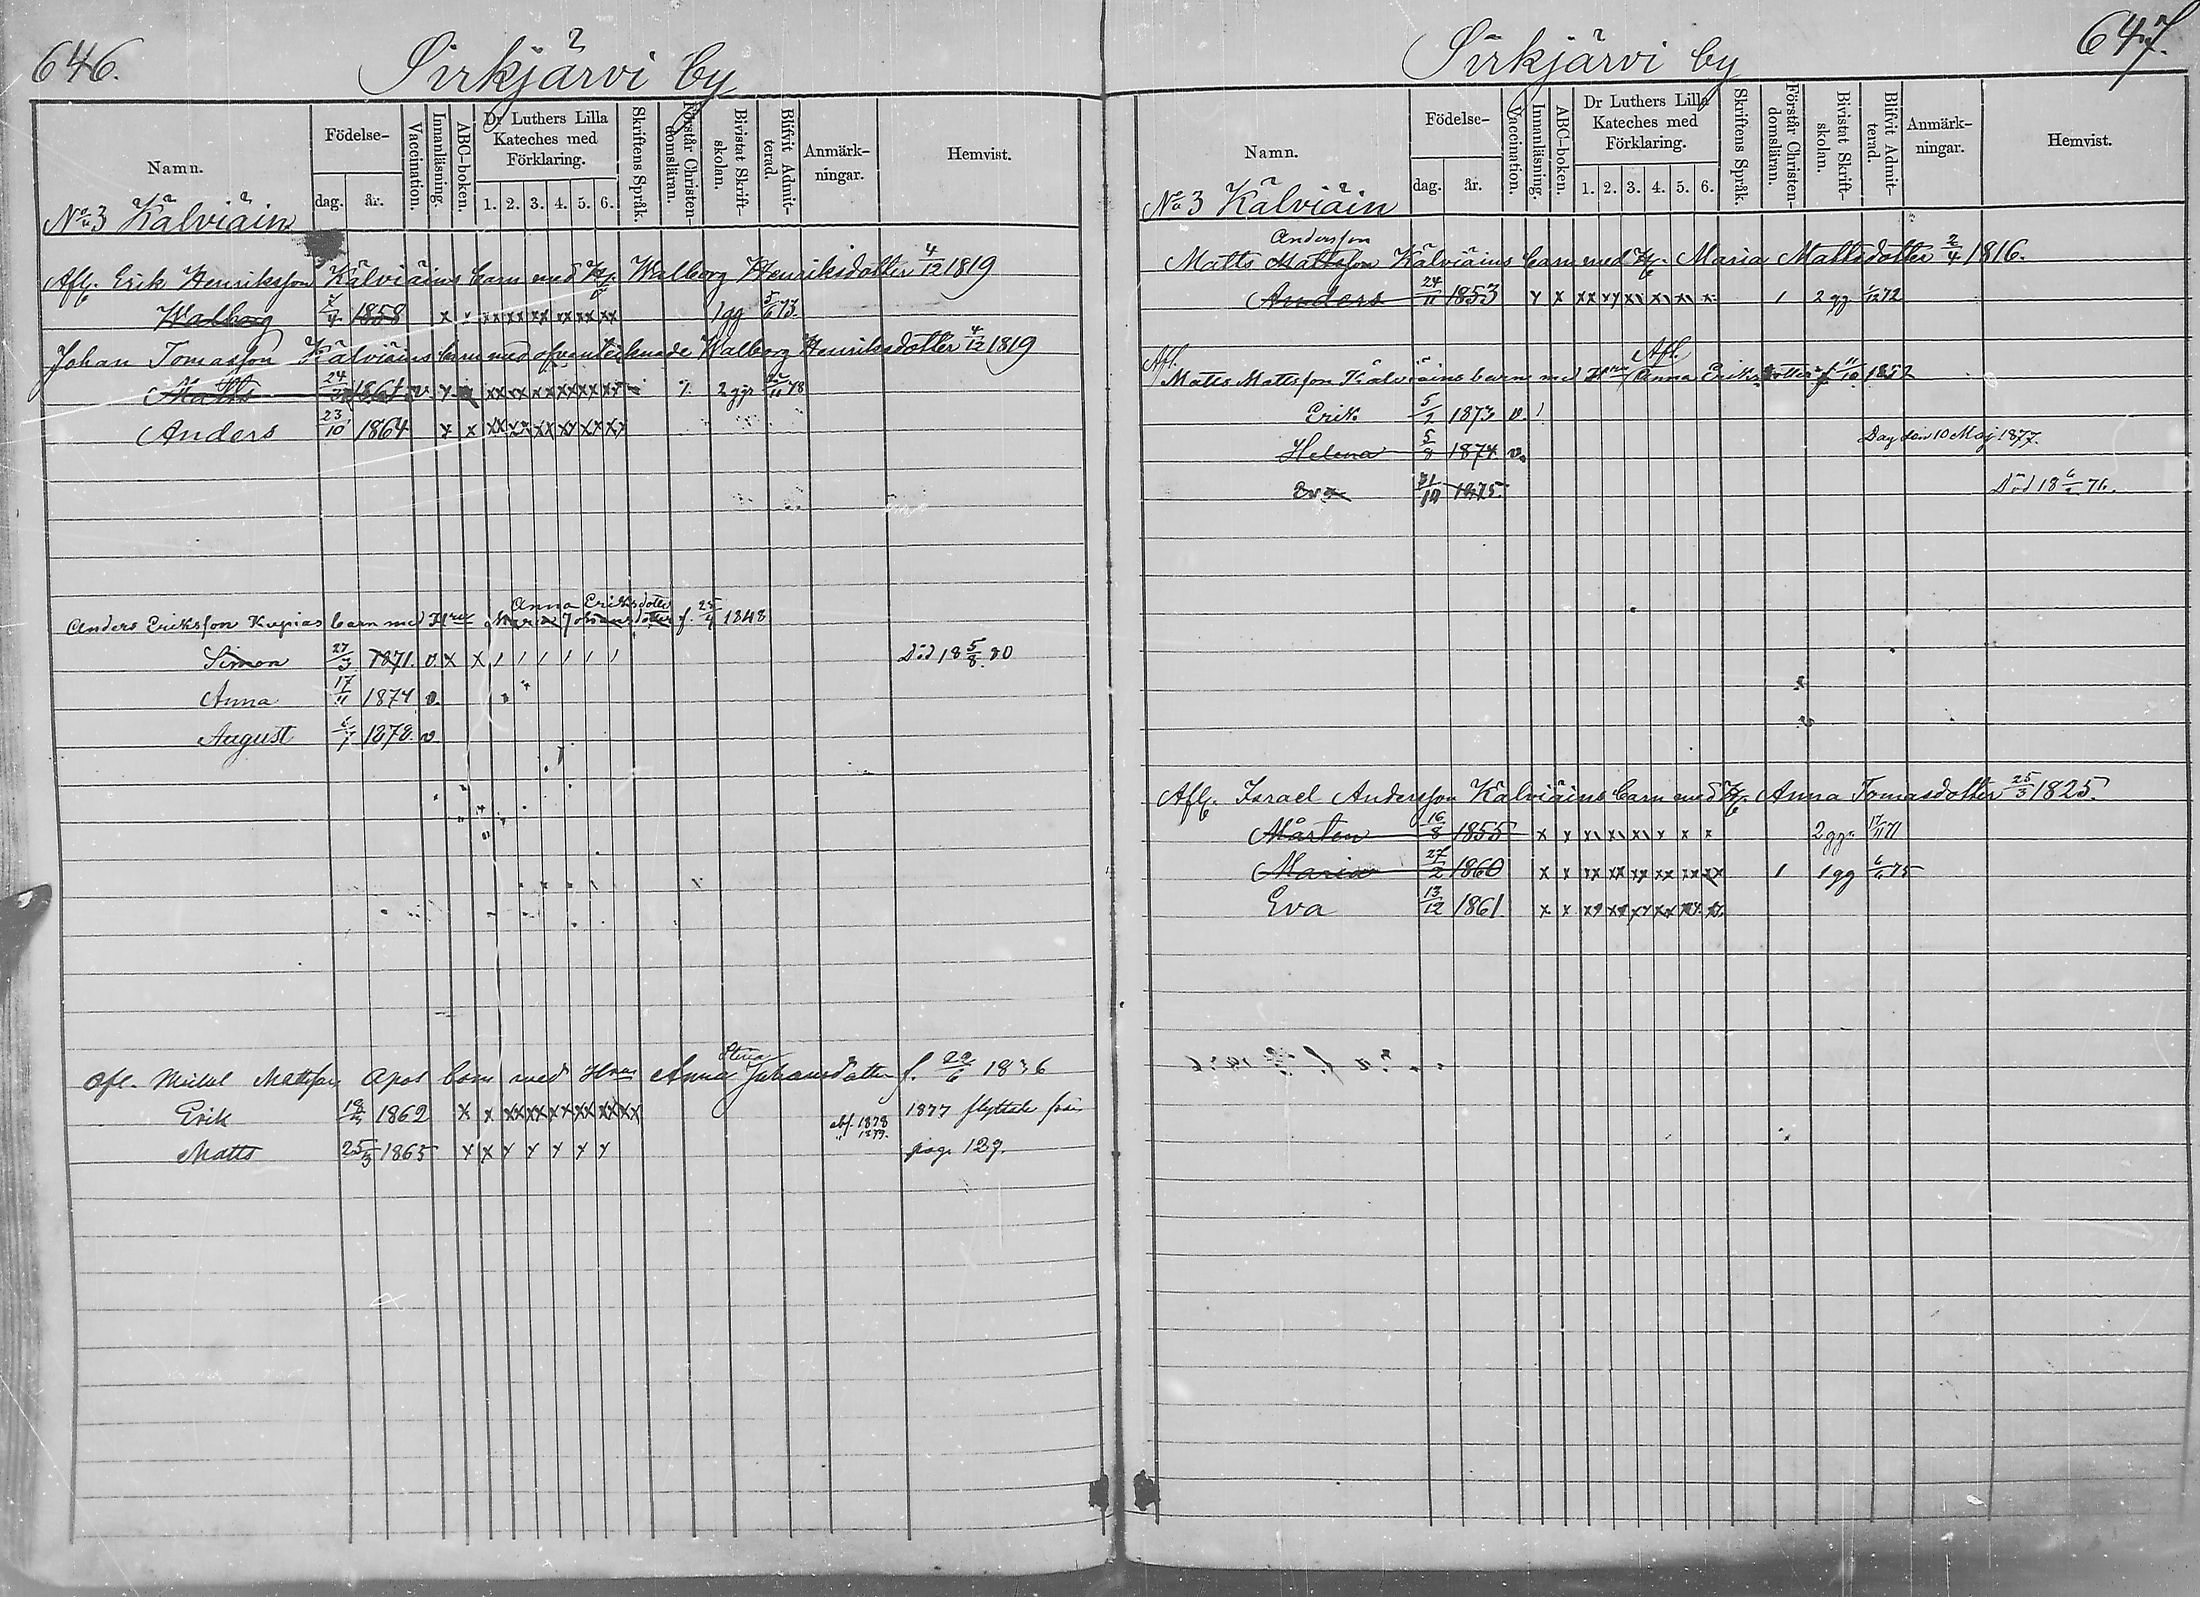 646.
Sirkjärvi by
Namn.
Födelse-
dag.
år.
Vaccination.
Innanläsning.
ABC-boken.
Dr Luthers Lilla Kateches med Förklaring.
1. 2. 3. 4. 5. 6.
Skriftens Språk.
Förstår Christendomsläran.
Bivistat Skriftskolan.
Blifvit Admitterad.
Anmärkningar.
Hemvist.
No 3 Kälviäin
Afl. Erik Henriksson Kälviäins barn med H. Walborg Henriksdotter 4/12 1819
Walborg 1858 x x xx xx xx xx xx xx 1 gg 5/6 73
Johan Tomasson Kälviäins barn med ofvantecknade Walborg Henriksdotter 4/12 1819
Matts 24/3 1861 v. 2 ggr 78
Anders 23/10 1864 x x xx xx xx xx xx xx
Anna Eriksdotter
Anders Eriksson Kupias barn med Hru Maria Johansdotter f. 25/4 1848
Simon 27/3 1871. v. x x / / / / / / Död 18 5/8 80
Anna 17/11 1874 v.
August 6/7 1878. v
Stina
Afl. Mickel Mattsson Apos barn med Hru Anna Johansdotter f. 29/6 1836
Erik 1862 x x xx xx xx xx xx xx abs. 1878 1877 flyttade från
Matts 25/3 1865 x x x x x x x x " 1879. pag. 129.
647.
Sirkjärvi by
Namn.
Födelse-
dag.
år.
Vaccination.
Innanläsning.
ABC-boken.
Dr Luthers Lilla Kateches med Förklaring.
1. 2. 3. 4. 5. 6.
Skriftens Språk.
Förstår Christendomsläran.
Bivistat Skriftskolan.
Blifvit Admitterad.
Anmärkningar.
Hemvist.
No 3 Kälviäin
Andersson
Matts Mattsson Kälviäins barn med H. Maria Mattsdotter 2/4 1816.
Anders 24/11 1853 x x xx xx xx xx xx x 1 2 gg 1/12 72
Afl. Afl.
Matts Mattsson Kälviäins barn med Hru Anna Eriksdotter f. 11/10 1852
Erik 5/2 1873 v. /
Helena 5/8 1874 v. Dag den 10 Maj 1877.
Eva 31/10 1875 Död 18 76.
Afl. Israel Andersson Kälviäins barn med H. Anna Tomasdotter 25/3 1825.
Mårten 16/8 1855 x x xx xx xx x x x 2 ggr 17/11 71
Maria 27/2 1860 x x xx xx xx xx xx xx 1 1 gg 6/6 75
Eva 13/12 1861 x x